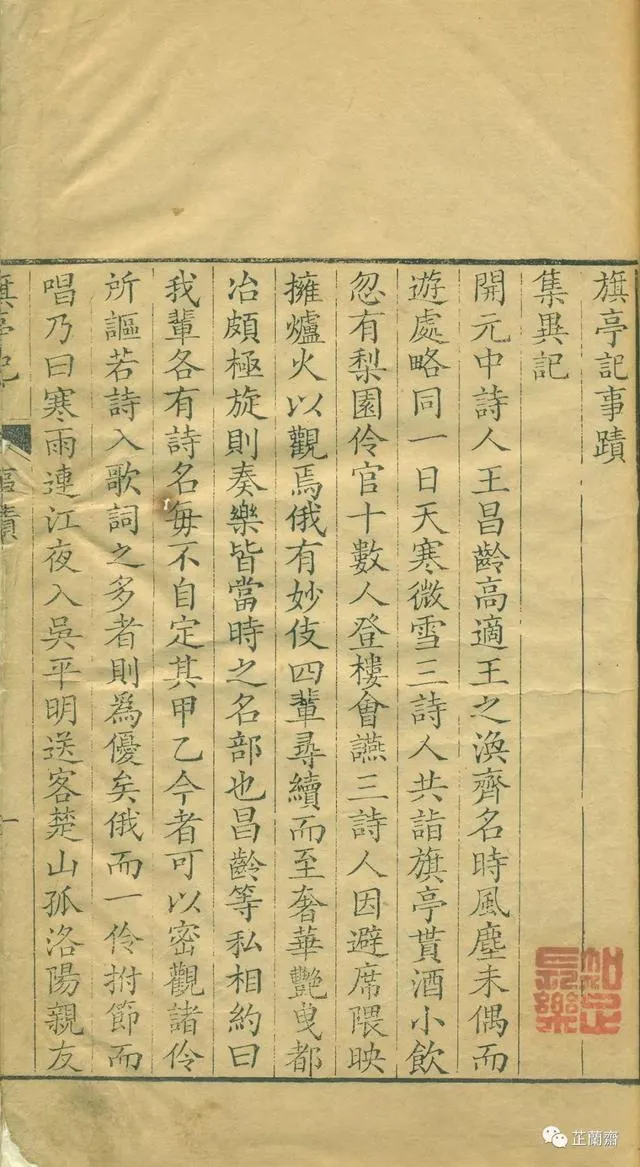 旗亭記事蹟
集異記
開元中詩人王昌齡高適王之渙齊名時風塵未偶而
遊處略同一日天寒微雪三詩人共詣旗亭貰酒小飲
忽有梨園伶官十數人登樓會讌三詩人因避席隈映
擁爐火以觀焉俄有妙伎四輩尋續而至奢華艷曳都
冶頗極旋則奏樂皆當時之名部也昌齡等私相約曰
我輩各有詩名每不自定其甲乙今者可以密觀諸伶
所謳若詩入歌詞之多者則爲優矣俄而一伶拊節而
唱乃曰寒雨連江夜入吳平明送客楚山孤洛陽親友
旗亭記
事蹟
一
知足長樂
芷蘭齋